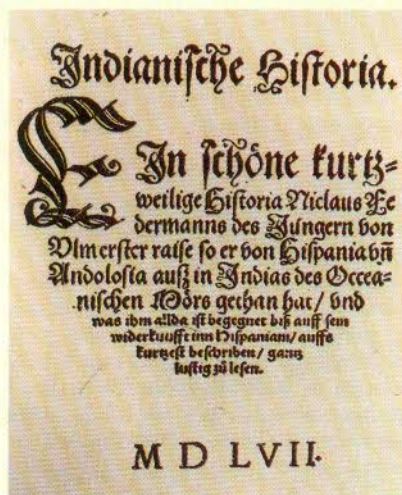 Indianische Historia.
EIn schöne kurtz=
weilige Historia Niclaus Fe
dermanns des Jüngern von
Vlm erster raise so er von Hispania vñ
Andolosia auß in Indias des Occea=
nischen Mörs gethan hat/ vnd
was ihm allda ist begegnet biß auff sein
widerkunfft inn Hispaniam/ auffs
kurtzest beschriben/ gantz
lustig zů lesen.
M D LVII.